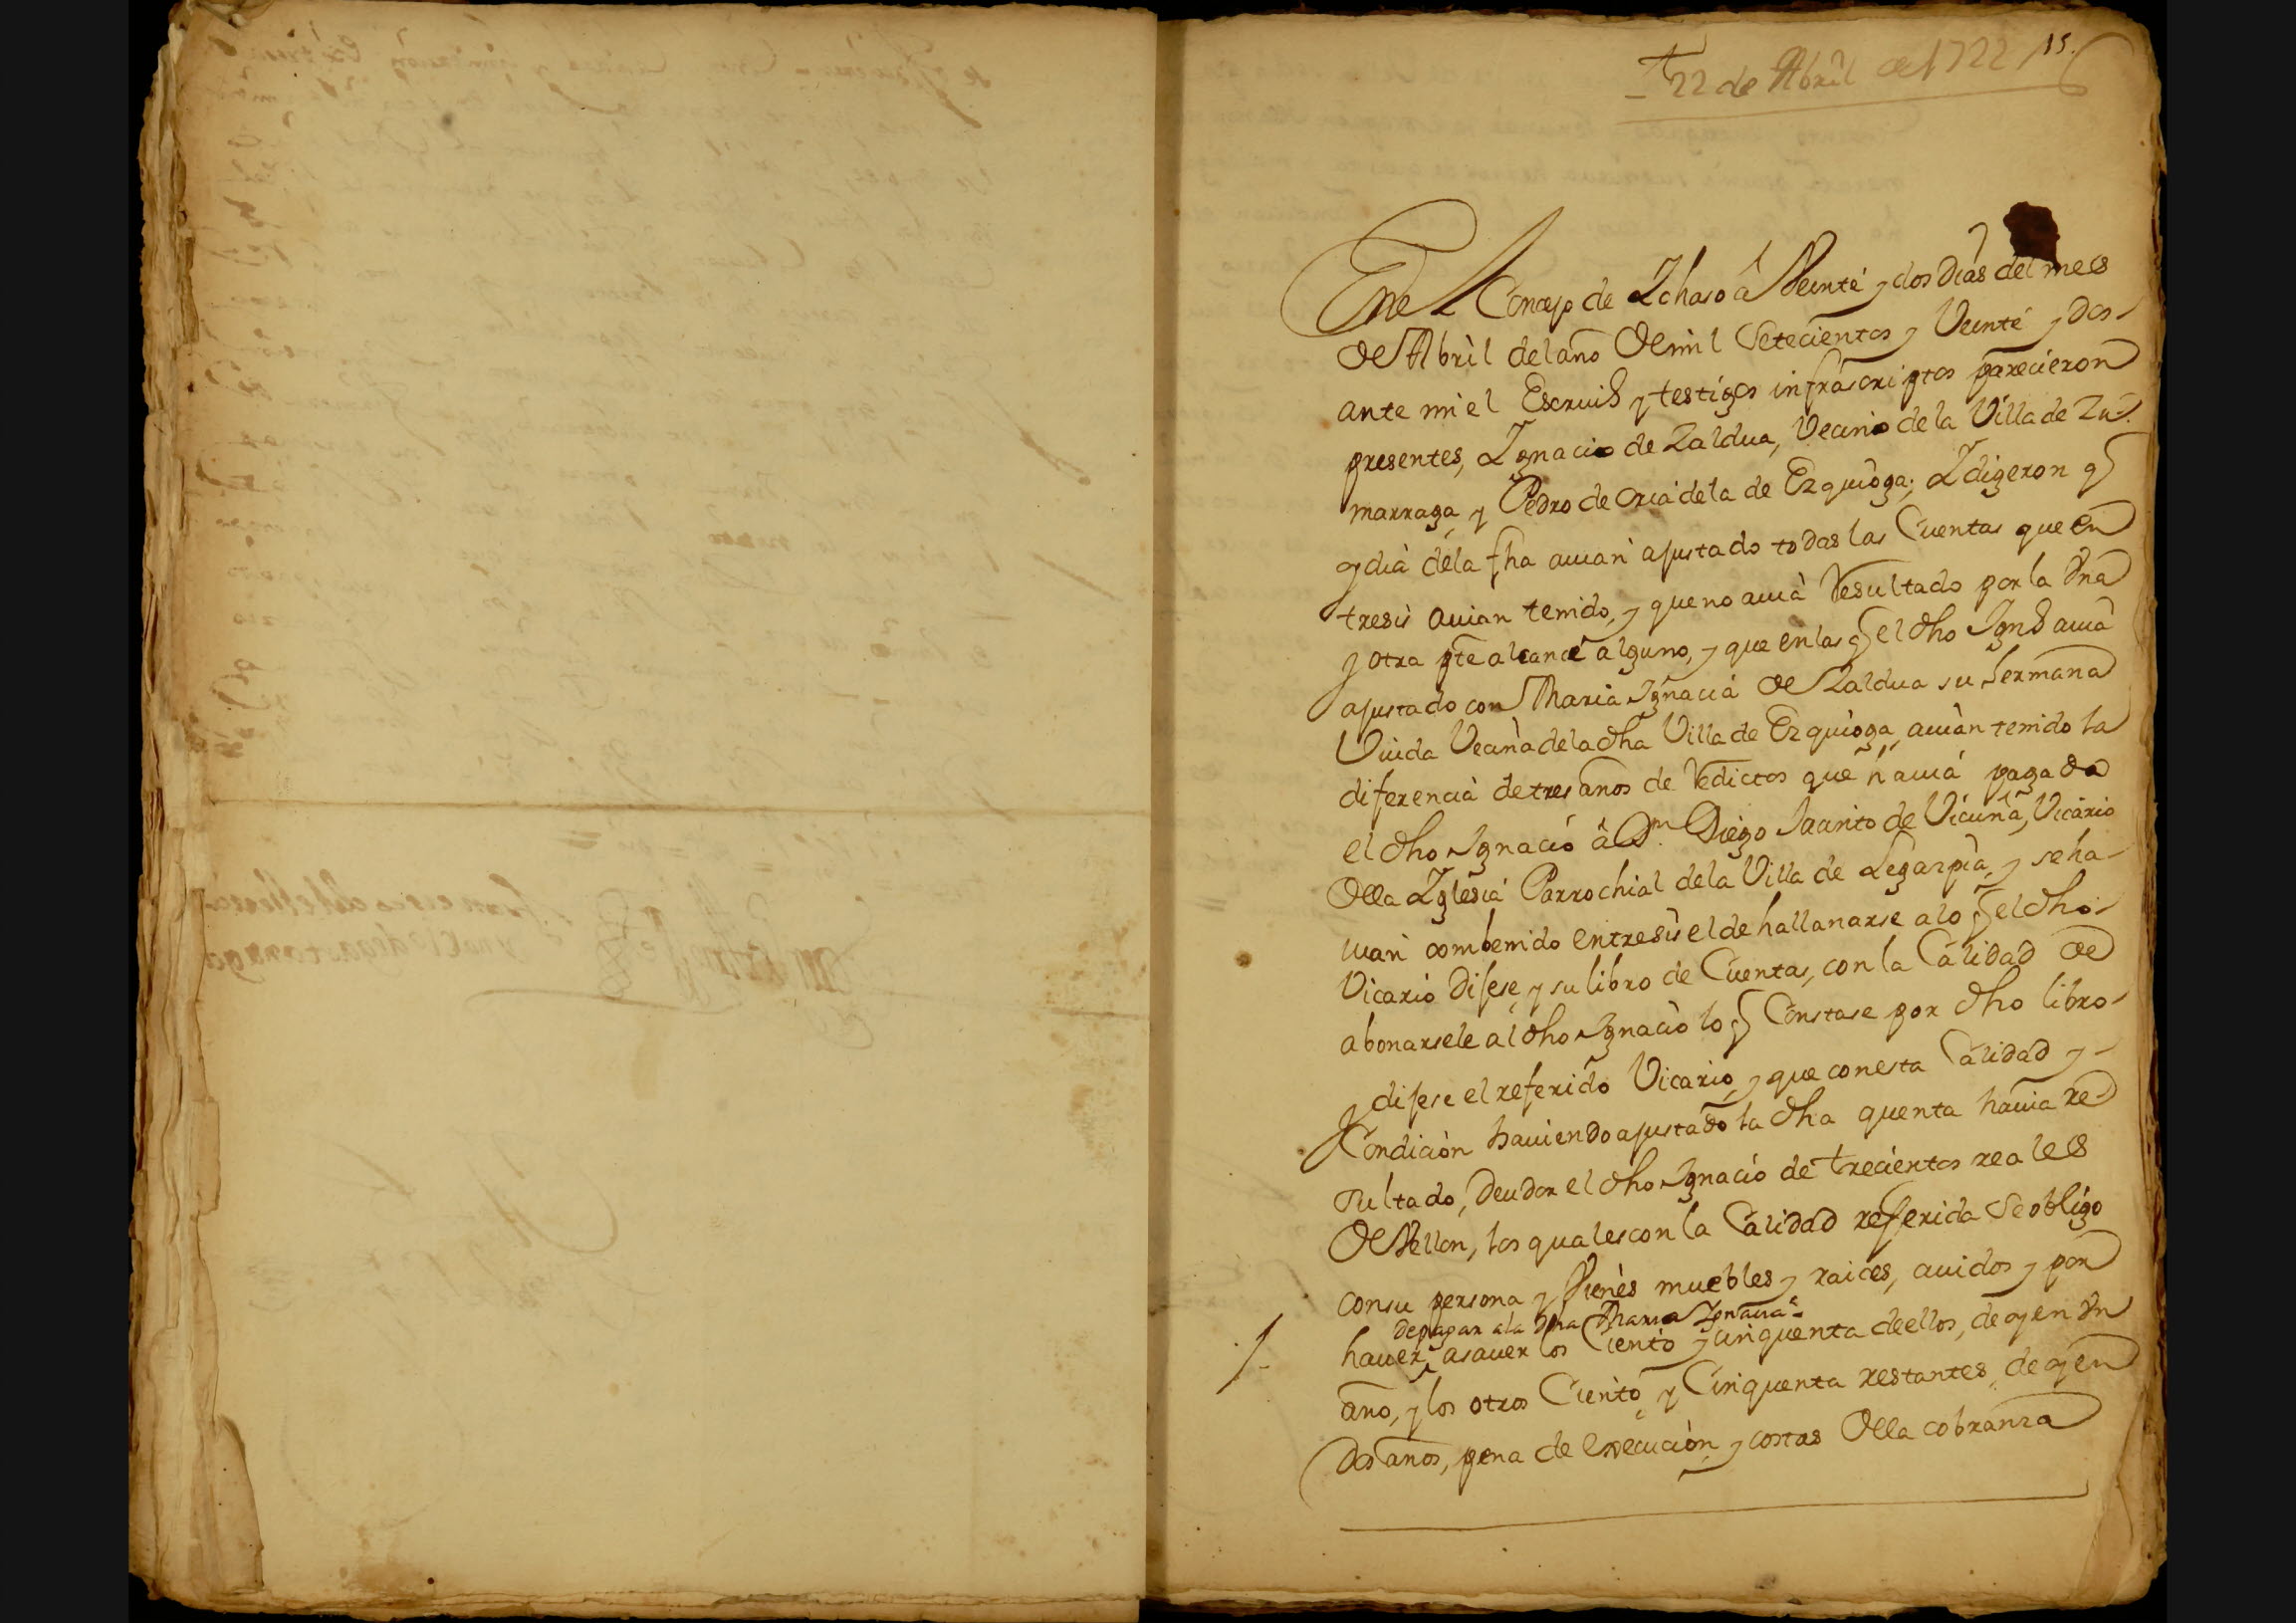 22 de Abril de 1722
15.
En el Concejo de Ichaso â Veinte y dos Dias del mes
de Abril del año de mil Setecientos y Veinte y dos
ante mi el Escriuº y testigos infrascriptos parecieron
presentes, Ignacio de Zaldua, Vecino de la Villa de Zu-
marraga, y Pedro de oria de la de Ezquioga; I digeron q
oy dia de la fha auian ajustado todas las Cuentas que en
tre si auian tenido, y que no auia Resultado por la Vna
y otra pte alcance alguno, y que en las q el dho Ignº auia
ajustado con Maria Ignacia de Zaldua su hermana
Viuda Vecina de la dha Villa de Ezquioga, auian tenido la
diferencia de tres años de Redictos que auia pagado
el dho Ignacio â Dn. Diego Jacinto de Vicuña, Vicario
de la Iglesia Parrochial de la Villa de Legazpia, y se ha-
uian combenido entre si el de hallanarse a lo q el dho
Vicario dijese, y su libro de Cuentas, con la Calidad de
abonarsele al dho Ignacio lo q Constase por dho libro
y dijese el referido Vicario, y que con esta Calidad y
Condicion hauiendo ajustado la dha quenta hauia re
sultado, Deudor el dho Ignacio de trecientos reales
de Vellon, los quales con la Calidad referida se obligo
con su persona y Vienes muebles y raices, auidos y por
de pagar a la dha Maria Ignacia
hauer, a sauer los Ciento y cinquenta de ellos, de oy en Vn
año, y los otros Ciento y Cinquenta restantes, de oy en
Dos años, pena de execucion y costas de la cobranza